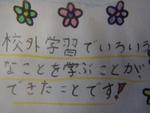 校外学習でいろいろ
なことを学ぶことが
できたことです!